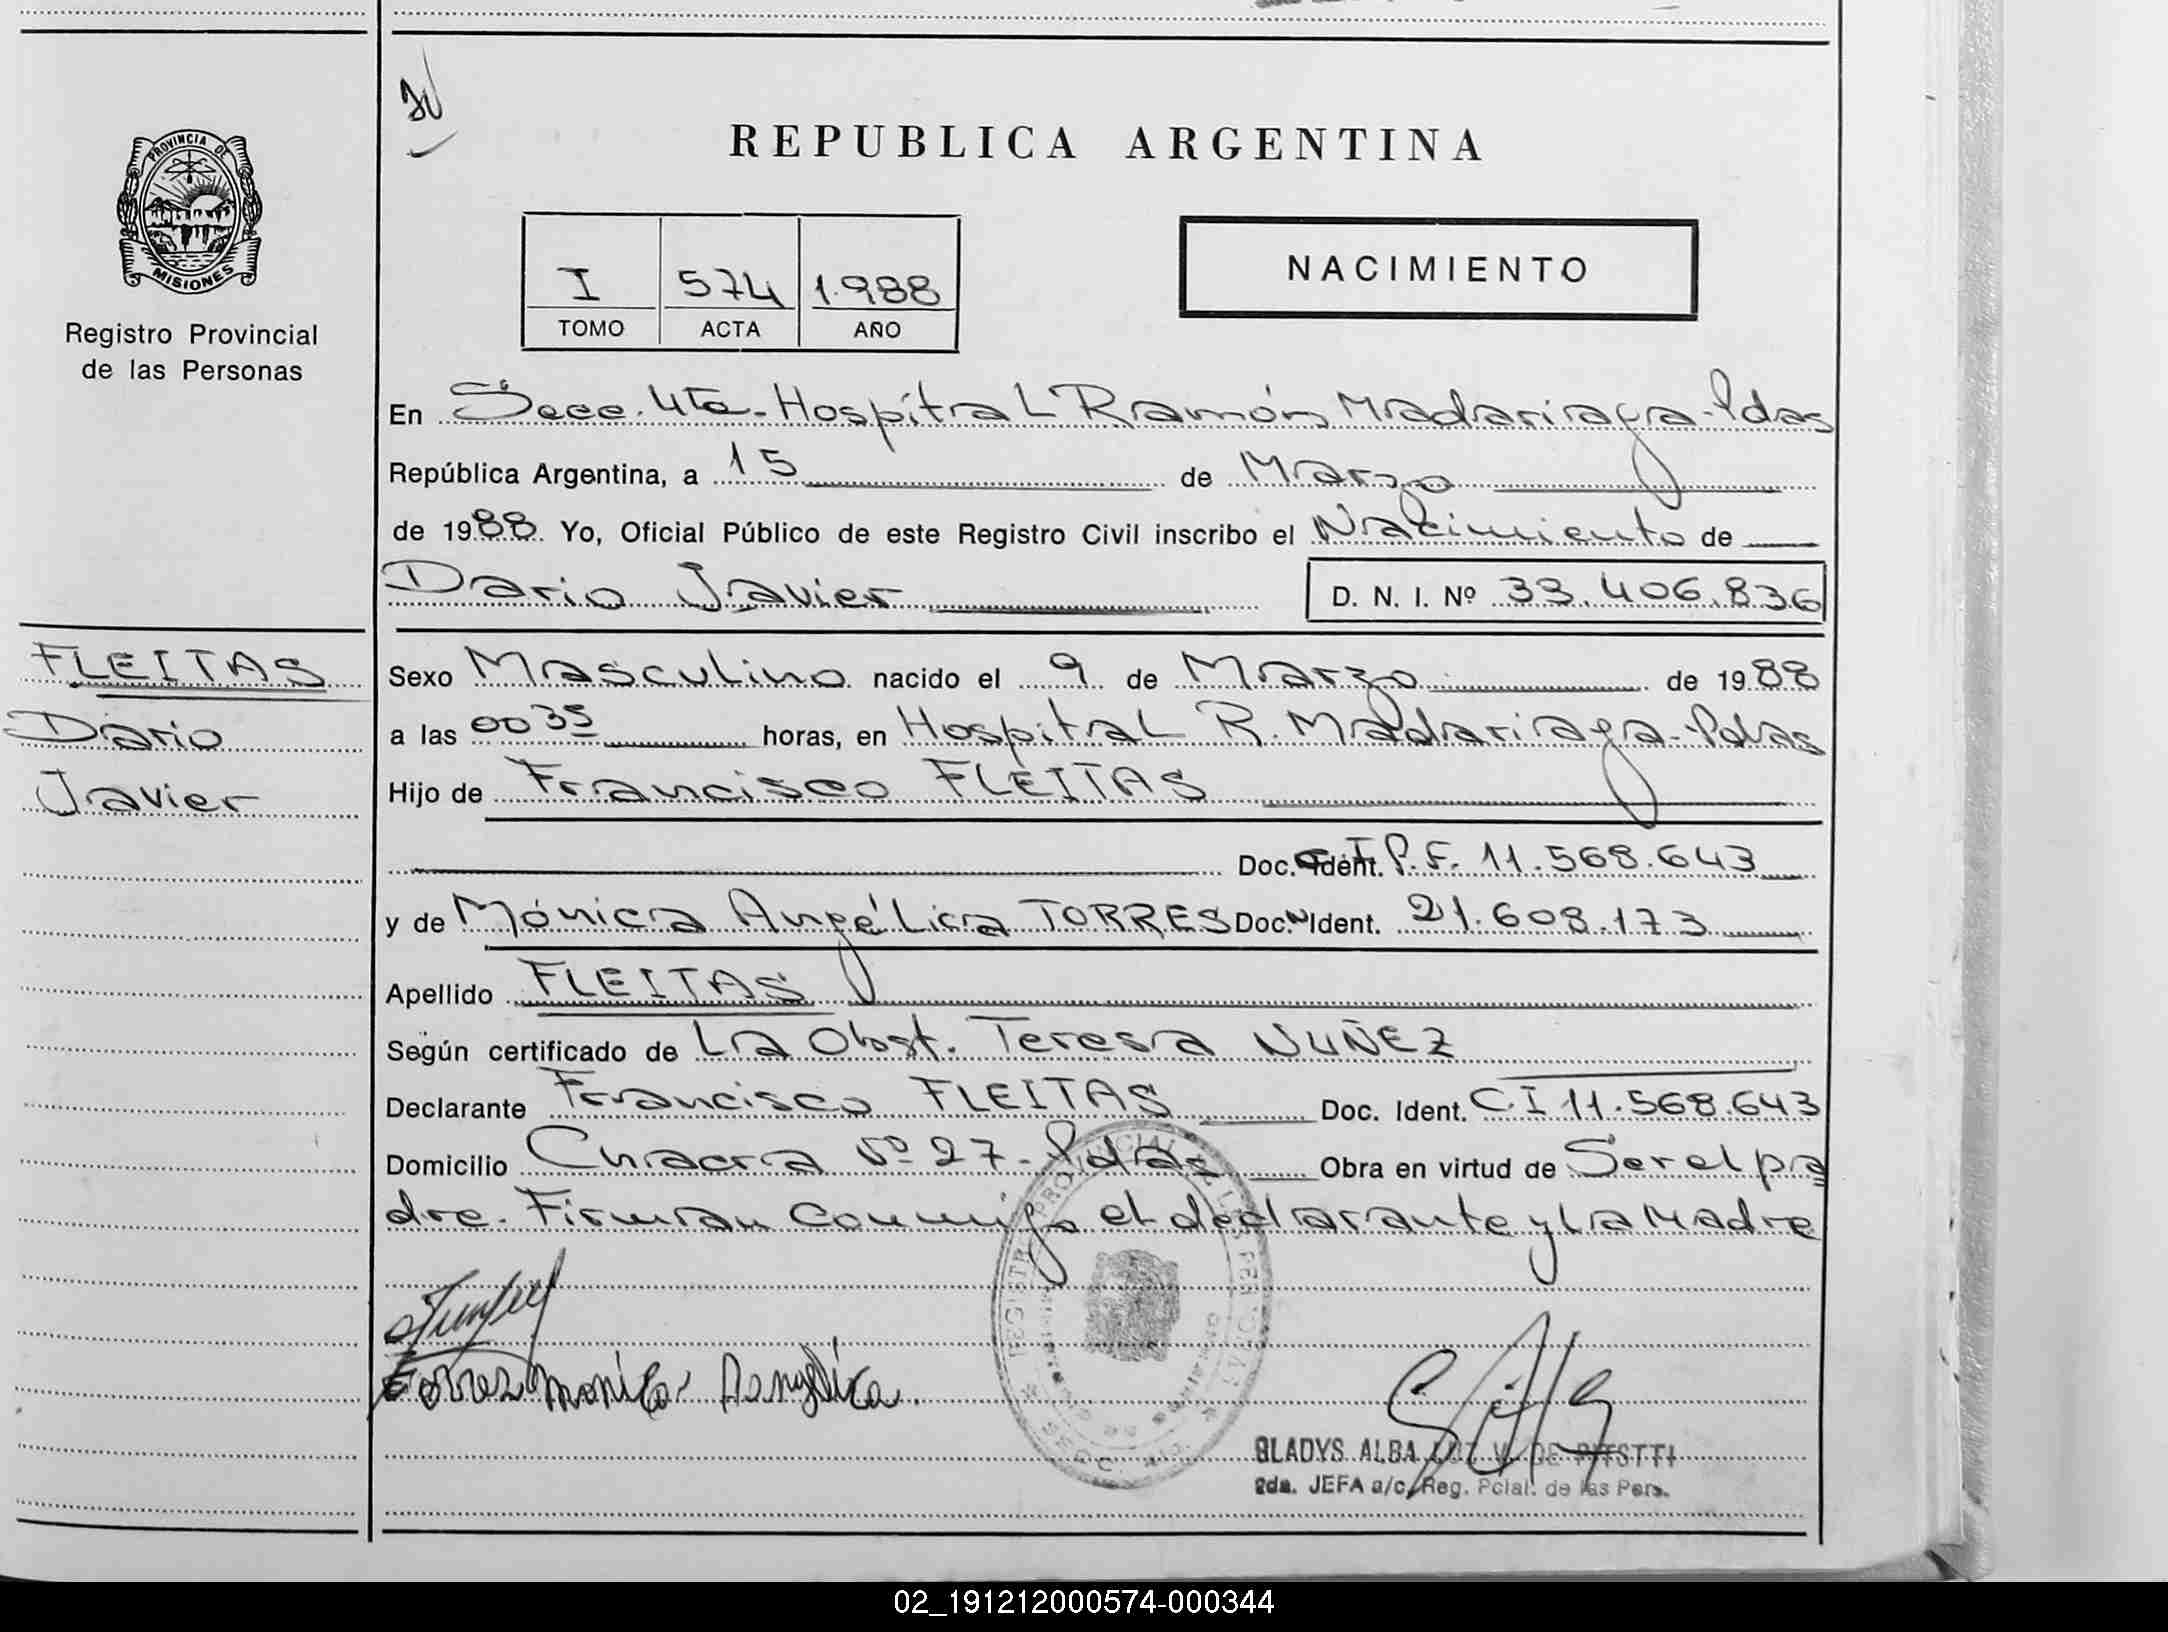 PROVINCIA DE
MISIONES
Registro Provincial
de las Personas
FLEITAS
Dario
Javier
REPUBLICA ARGENTINA
I 574 1.988
TOMO ACTA AÑO
NACIMIENTO
En Secc. 4ta. Hospital Ramón Madariaga - Pdas
República Argentina, a 15 de Marzo
de 1988. Yo, Oficial Público de este Registro Civil inscribo el Nacimiento de
Dario Javier D. N. I. Nº 33.406.836
Sexo Masculino nacido el 9 de Marzo de 1988
a las 00 35 horas, en Hospital R. Madariaga - Pdas
Hijo de Francisco FLEITAS
Doc. Ident. C.I P.F. 11.568.643
y de Mónica Angélica TORRES Doc. N Ident. 21.608.173
Apellido FLEITAS
Según certificado de La Obst. Teresa NUÑEZ
Declarante Francisco FLEITAS Doc. Ident. C.I 11.568.643
Domicilio Chacra Nº 27 - Pdas Obra en virtud de Ser el pa
dre. Firman conmigo el declarante y la Madre
Torres Monica Angelica.
GLADYS ALBA LUZ V. DE
2da. JEFA a/c. Reg. Pcial. de las Pers.
02_191212000574-000344